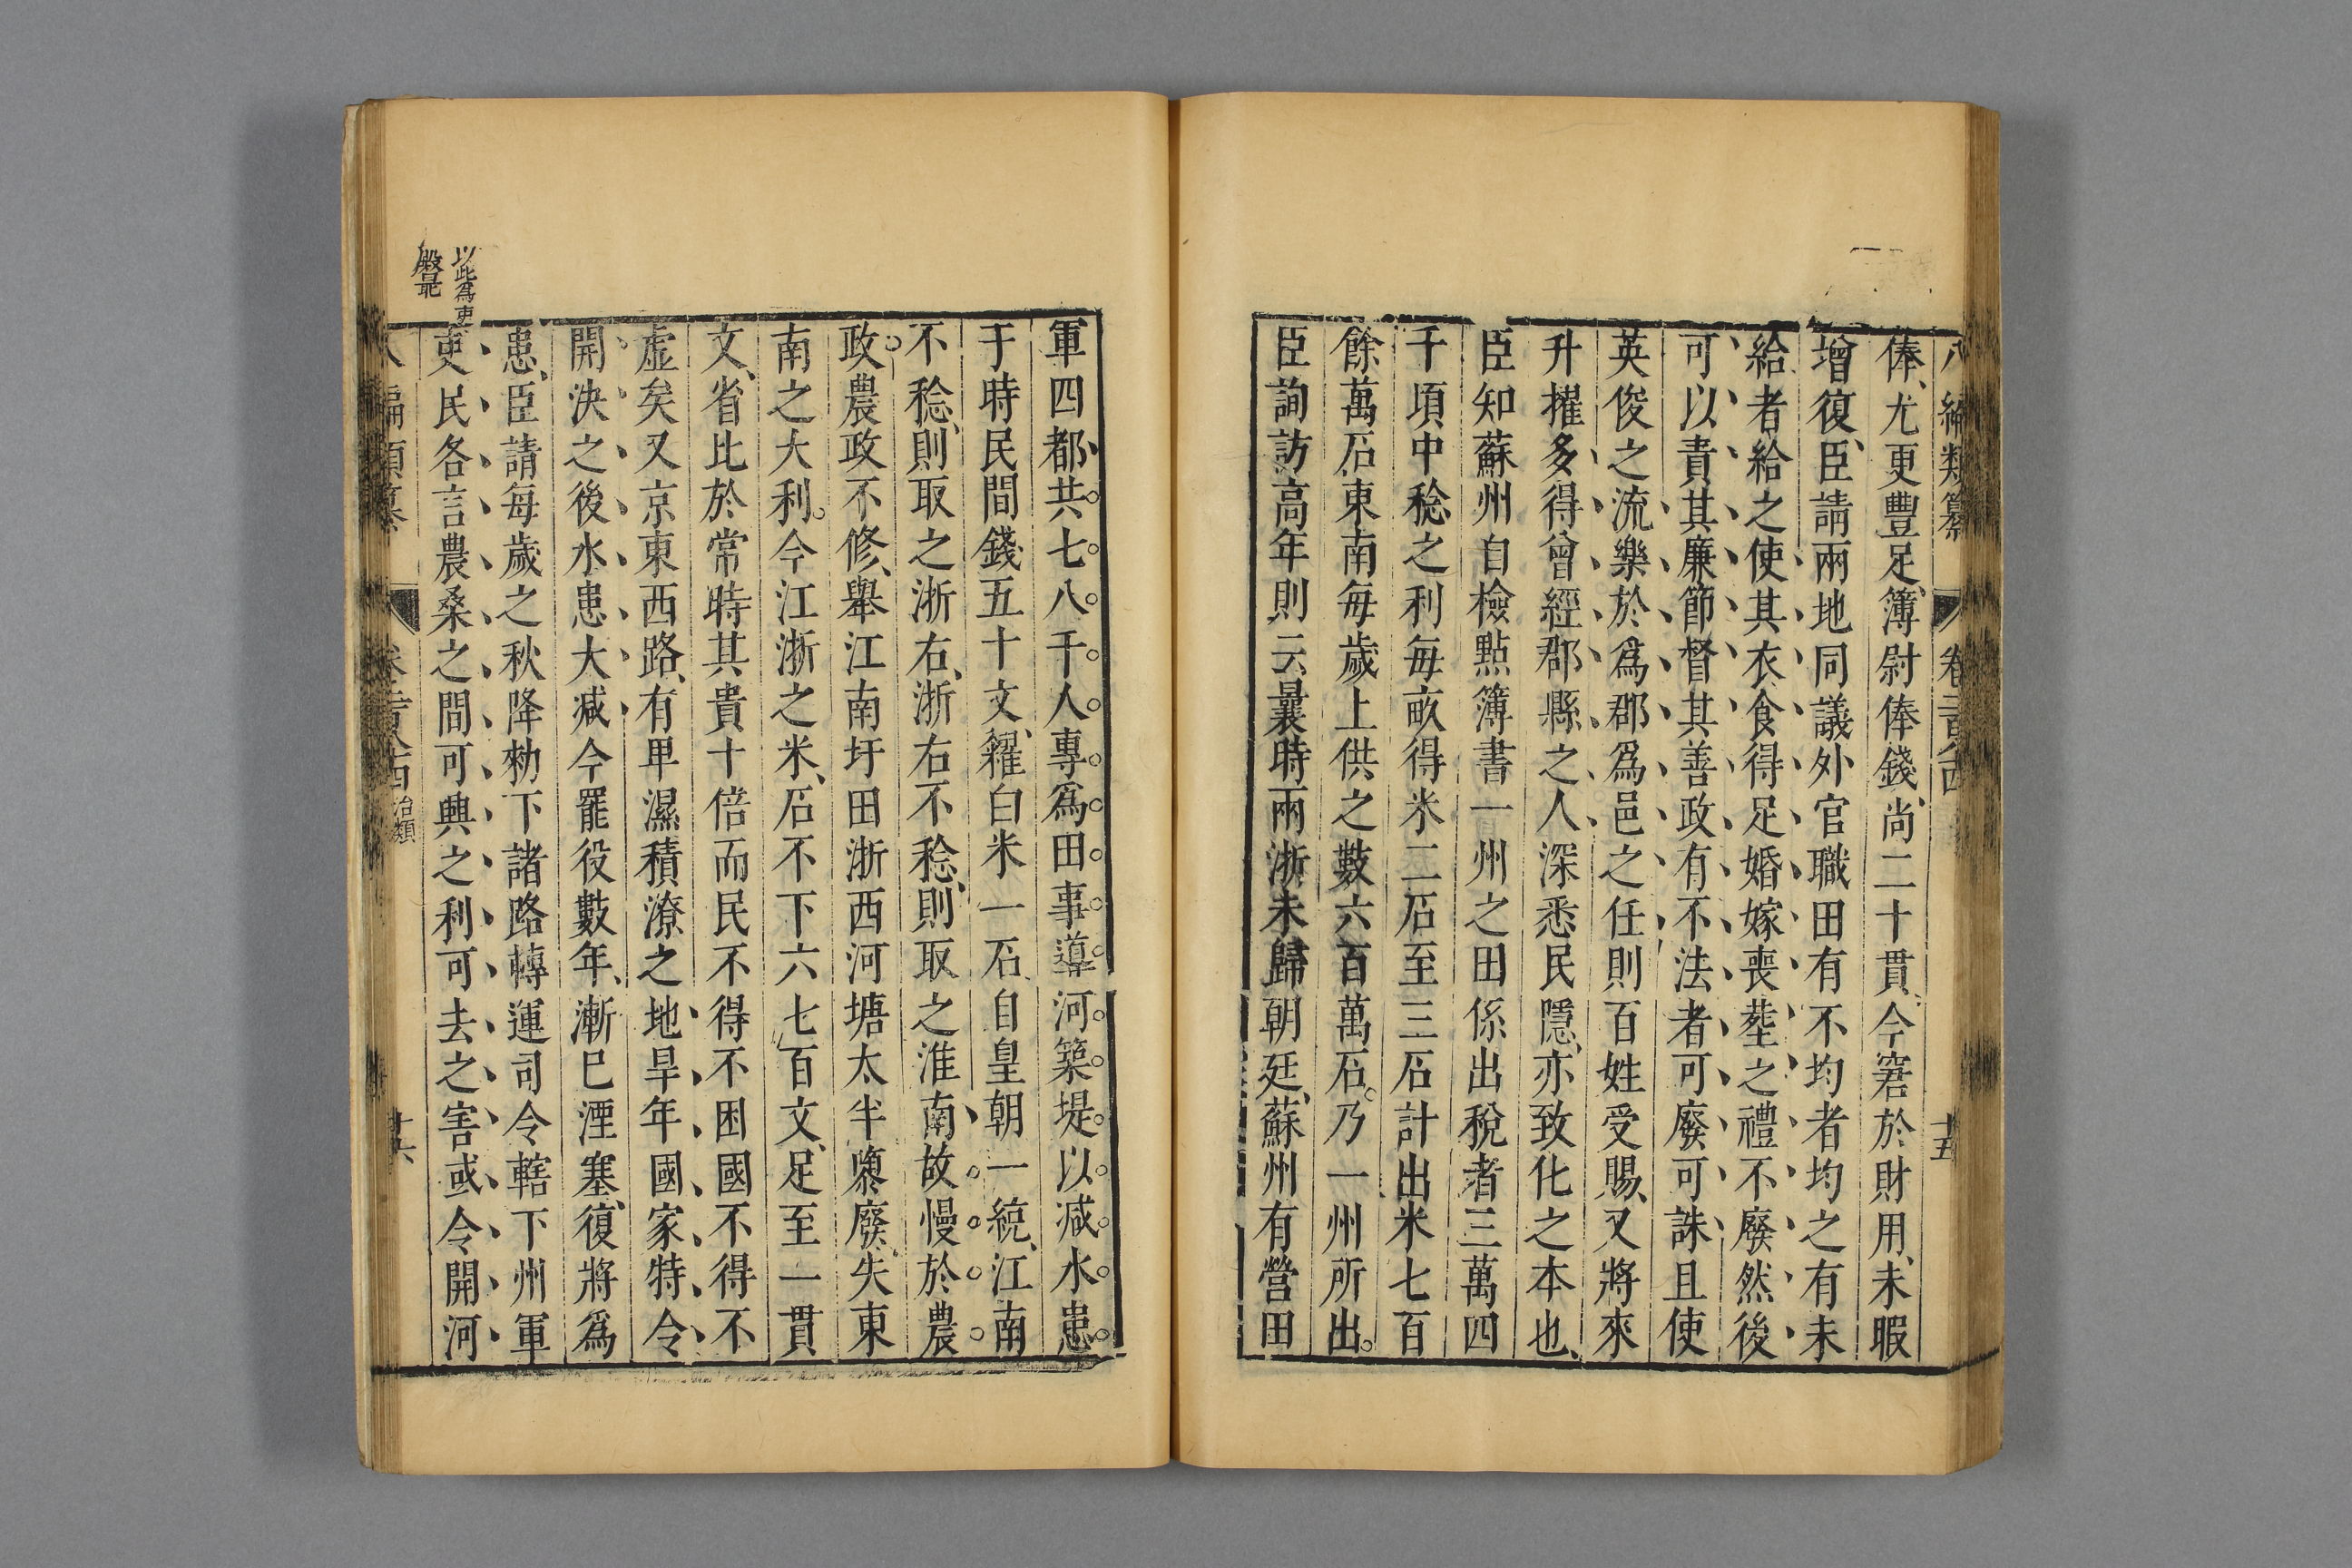 八編類纂 卷二百八十四 十五
俸、尤更豐足、簿尉俸錢、尚二十貫、今窘於財用、未暇
增復、臣請兩地同議外官職田有不均者均之有未
給者給之使其衣食得足婚嫁喪塟之禮不廢然後
可以責其廉節督其善政有不法者可廢可誅且使
英俊之流樂於爲郡爲邑之任則百姓受賜、又將來
升擢多得曾經郡縣之人、深悉民隱、亦致化之本也、
臣知蘇州自檢點簿書一州之田係出稅者三萬四
千頃中稔之利每畝得米二石至三石計出米七百
餘萬石東南每歲上供之數六百萬石。乃一州所出。
臣詢訪高年則云曩時兩浙未歸朝廷、蘇州有營田
軍四都共七八千人專爲田事導河築堤以减水患。
于時民間錢五十文、糴白米一石、自皇朝一統、江南
不稔、則取之浙右、浙右不稔、則取之淮南故慢於農
政。農政不修、舉江南圩田浙西河塘太半隳廢、失東
南之大利。今江浙之米、石不下六七百文、足至一貫
文、省比於常時其貴十倍而民不得不困國不得不
虛矣又京東西路、有卑濕積潦之地旱年國家特令
開決之後水患大减今罷役數年、漸巳湮塞、復將爲
患、臣請每歲之秋降勑下諸路轉運司令轄下州軍
吏民各言農桑之間可興之利可去之害或令開河
以此爲吏
殿最
八編類纂 卷 治類 十六